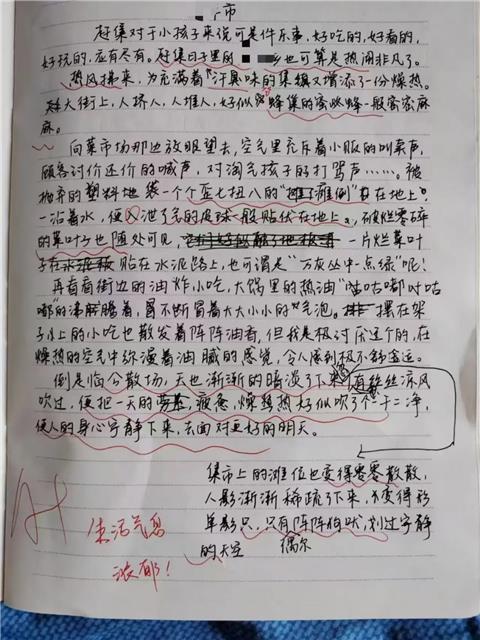 市
赶集对于小孩子来说可是件乐事，好吃的，好看的，
好玩的，应有尽有。赶集日子里的 乡也可算是热闹非凡了。
热风揉来，为充满着“汗臭味的集镇又增添了一份燥热。
大街上，人挤人，人推人，好似蜂巢的蜜蜂一般密密麻
麻。
向菜市场那边放眼望去，空气里充斥着小贩的叫卖声，
顾客讨价还价的喊声，对淘气孩子的打骂声……。被
抛弃的塑料袋一个个歪七扭八的“瘫倒”在地上。
一沾着水，便又泄了气的皮球一般贴伏在地上，破烂零碎
的菜叶子也随处可见，一片烂菜叶
子贴在水泥路上，也可谓是“万灰丛中一点绿”呢！
再看看街边的油炸小吃，大锅里的热油“咕嘟咕
嘟”的沸腾着，冒不断冒着大大小小的气泡。摆在架
子上的小吃也散发着阵阵油香，但我是极讨厌这个的，在
燥热的空气中弥漫着油腻的感觉，令人感到极不舒适。
倒是临今散场，天也渐渐的暗淡了下来，有丝丝凉风
吹过，便把一天的疲惫，燥热好似吹了个一干二净，
使人的身心宁静下来，去面对更好的明天。
集市上的摊位也变得零零散散，
人影渐渐稀疏了下来，变得形
单影只，只有阵阵狗吠，划过宁静
的天空 偶尔
生活气息
浓郁！